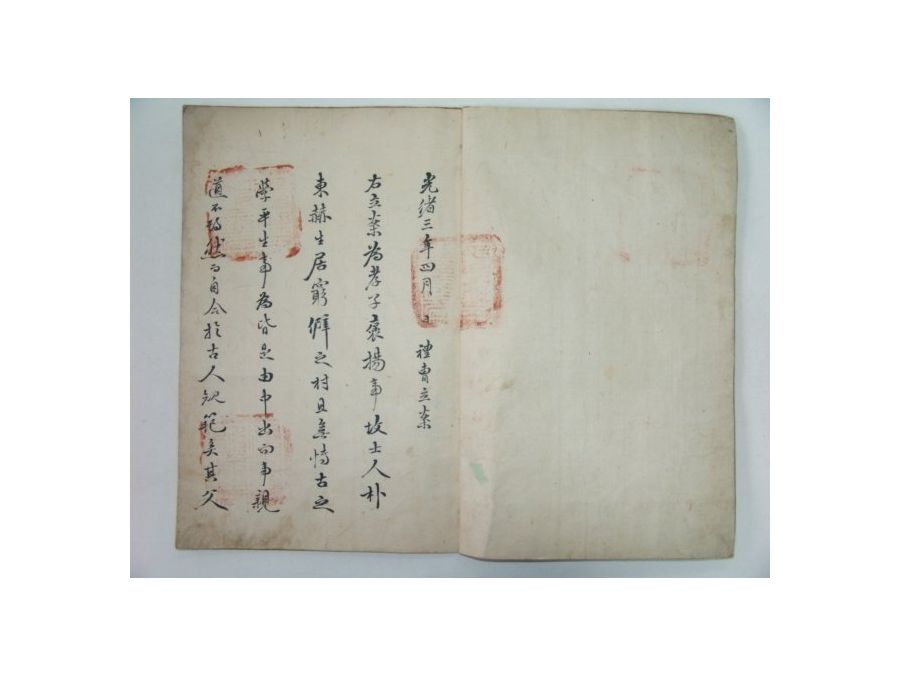 光緖三年四月 日 禮曹立案
右立案爲孝子褒揚事故士人朴
東赫生居窮僻之村且無恃古之
學平生事爲皆是由中出而事親
道不期然而自合於古人規範矣其父